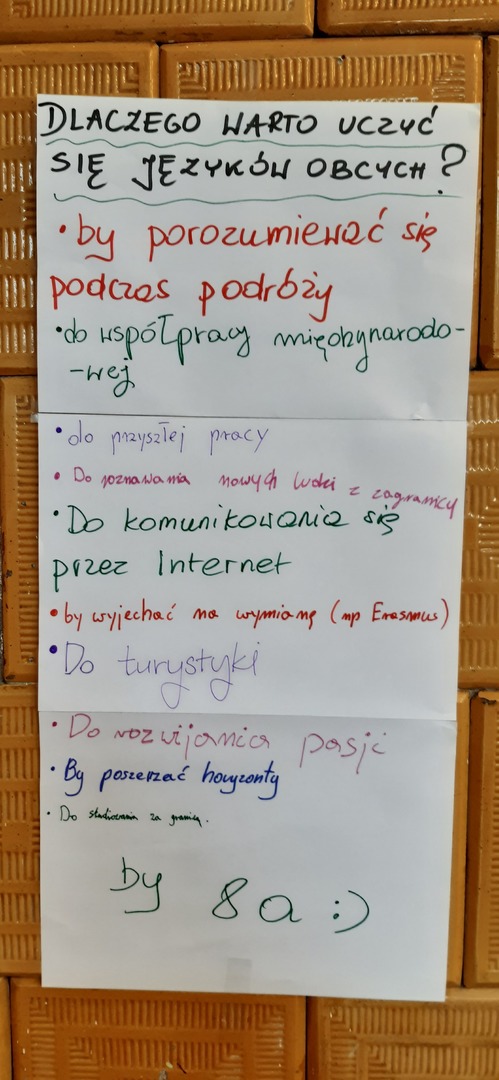 DLACZEGO WARTO UCZYĆ
SIĘ JĘZYKÓW OBCYCH?
• by porozumiewać się
podczas podróży
• do współpracy międzynarodo-
-wej
• do przyszłej pracy
• Do poznawania nowych ludzi z zagranicy
• Do komunikowania się
przez Internet
• by wyjechać na wymianę (np Erasmus)
• Do turystyki
• Do rozwijania pasji
• By poszerzać horyzonty
• Do studiowania za granicą.
by 8a :)